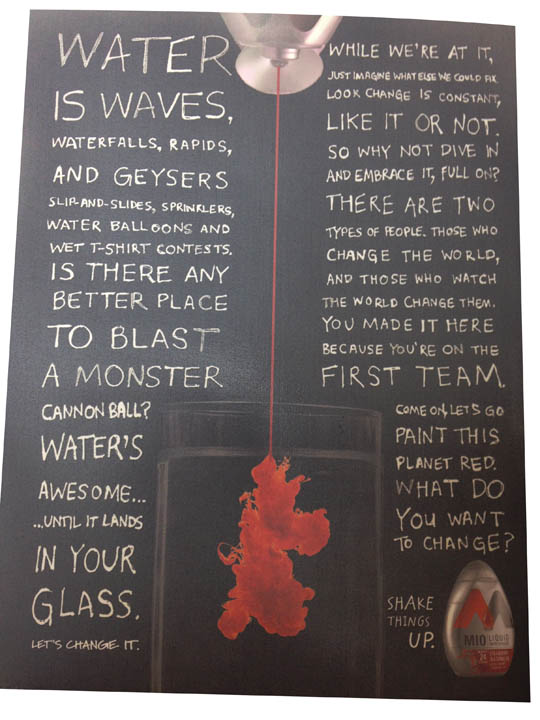 WATER
IS WAVES,
WATERFALLS, RAPIDS,
AND GEYSERS
SLIP-AND-SLIDES, SPRINKLERS,
WATER BALLOONS AND
WET T-SHIRT CONTESTS.
IS THERE ANY
BETTER PLACE
TO BLAST
A MONSTER
CANNON BALL?
WATER'S
AWESOME...
...UNTIL IT LANDS
IN YOUR
GLASS.
LET'S CHANGE IT.
WHILE WE'RE AT IT,
JUST IMAGINE WHAT ELSE WE COULD FIX.
LOOK CHANGE IS CONSTANT,
LIKE IT OR NOT.
SO WHY NOT DIVE IN
AND EMBRACE IT, FULL ON?
THERE ARE TWO
TYPES OF PEOPLE. THOSE WHO
CHANGE THE WORLD,
AND THOSE WHO WATCH
THE WORLD CHANGE THEM.
YOU MADE IT HERE
BECAUSE YOU'RE ON THE
FIRST TEAM.
COME ON, LET'S GO
PAINT THIS
PLANET RED.
WHAT DO
YOU WANT
TO CHANGE?
SHAKE
THINGS
UP.
MIO LIQUID